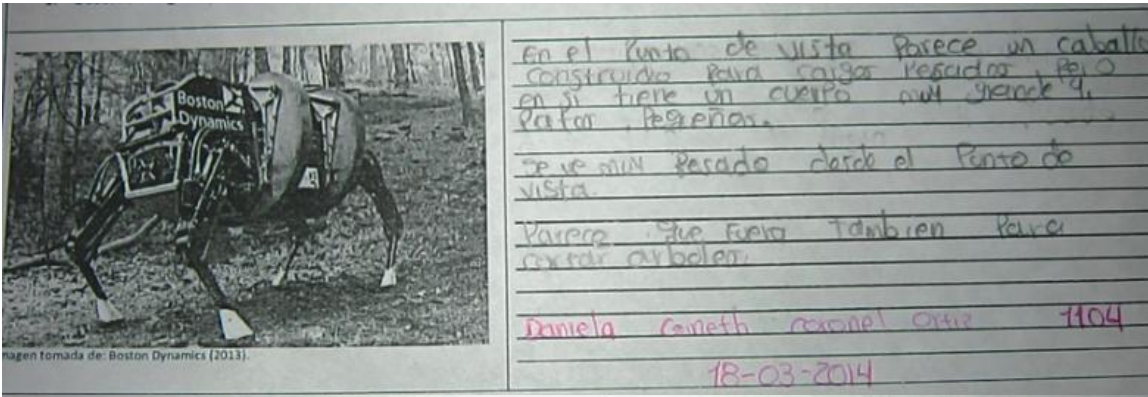 Boston
Dynamics
magen tomada de: Boston Dynamics (2013).
En el Punto de vista Parece un caballo
construido Para cargar Pesados, Pero
en si tiene un cuerpo muy grande y
Patas Pequeñas.
Se ve muy Pesado desde el Punto de
vista.
Parece que fuera tambien Para
cortar arboles.
Daniela Coronel Ortiz 1104
18-03-2014